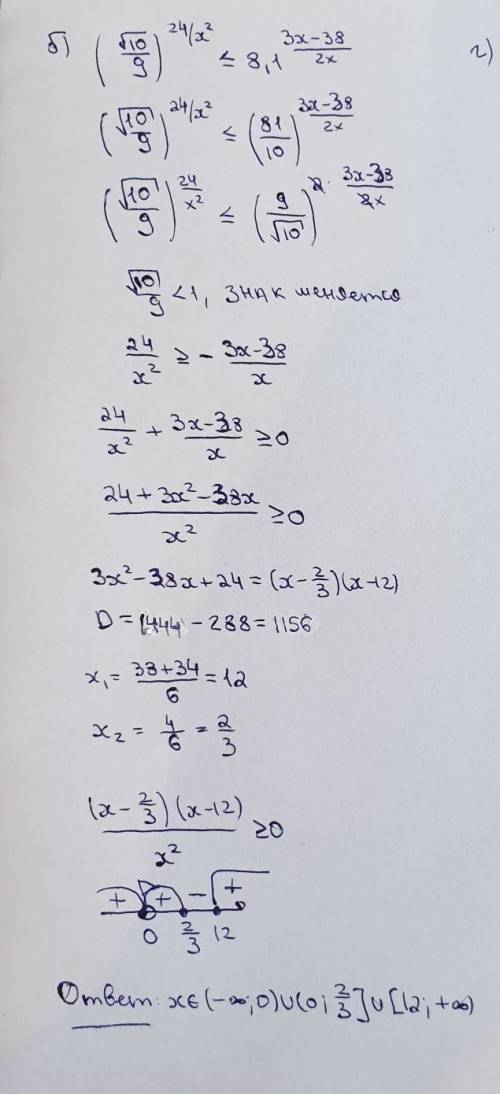 б) (√10/9)^(24/x²) ≤ 8,1^((3x-38)/(2x)) г)
(√10/9)^(24/x²) ≤ (81/10)^((3x-38)/(2x))
(√10/9)^(24/x²) ≤ (9/√10)^(2·(3x-38)/(2x))
√10/9 < 1, знак меняется
24/x² ≥ - (3x-38)/x
24/x² + (3x-38)/x ≥ 0
(24 + 3x² - 38x)/x² ≥ 0
3x² - 38x + 24 = (x - 2/3)(x-12)
D = 1444 - 288 = 1156
x₁ = (38+34)/6 = 12
x₂ = 4/6 = 2/3
(x - 2/3)(x-12)/x² ≥ 0
+ + - +
0 2/3 12
Ответ: x∈(-∞;0)∪(0; 2/3]∪[12; +∞)